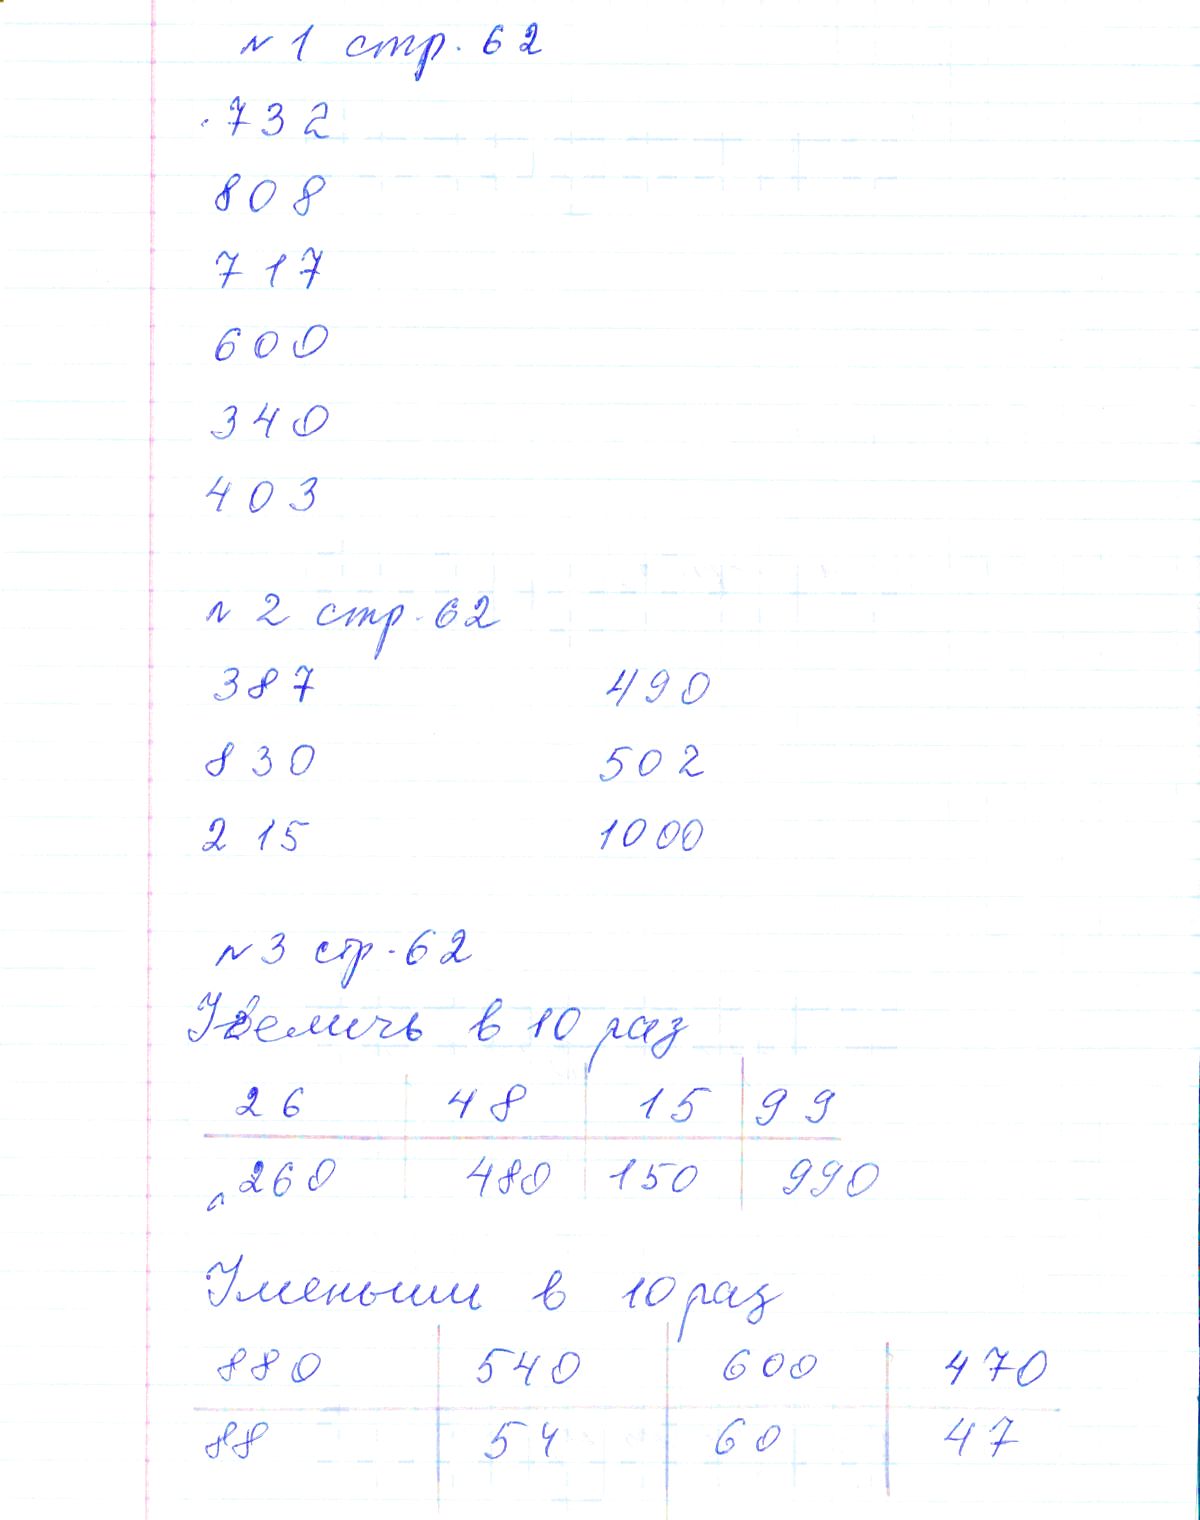 № 1 стр. 62
732
808
717
600
340
403
№ 2 стр. 62
387 490
830 502
215 1000
№ 3 стр. 62
Увеличь в 10 раз
26 48 15 99
260 480 150 990
Уменьши в 10 раз
880 540 600 470
88 54 60 47